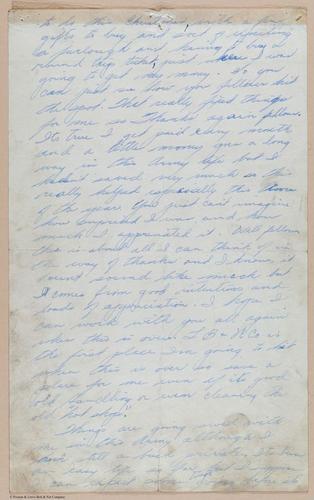 to do this Christmas, with a few
gifts to buy and sort of expecting
a furlough and having to buy a
round trip ticket, just where I was
going to get my money. So you
can just see how you fellows hit
the spot. That really fixed things
for me so Thanks again fellows.
Its true I get paid every month
and a little money goes a long
way in this Army life but I
haven't saved very much so this
really helped especially this time
of the year. You just can't imagine
how surprised I was and how
much I appreciated it. Well fellows
this is about all I can think of in
the way of thanks and I know it
doesnt sound like much but
it comes from good intentions and
loads of appreciation. I hope I
can work with you all again
when this is over. L B & W Co. is
the first place I'm going to hit
when this is over so save a
place for me even if its good
old handling or even cleaning the
old "hot shop".
Things are going swell with
me in this Army although I
am still a buck private. Its
an easy life so far but I suppose
can expect some before
© Preston & Lower Bolt & Nut Company